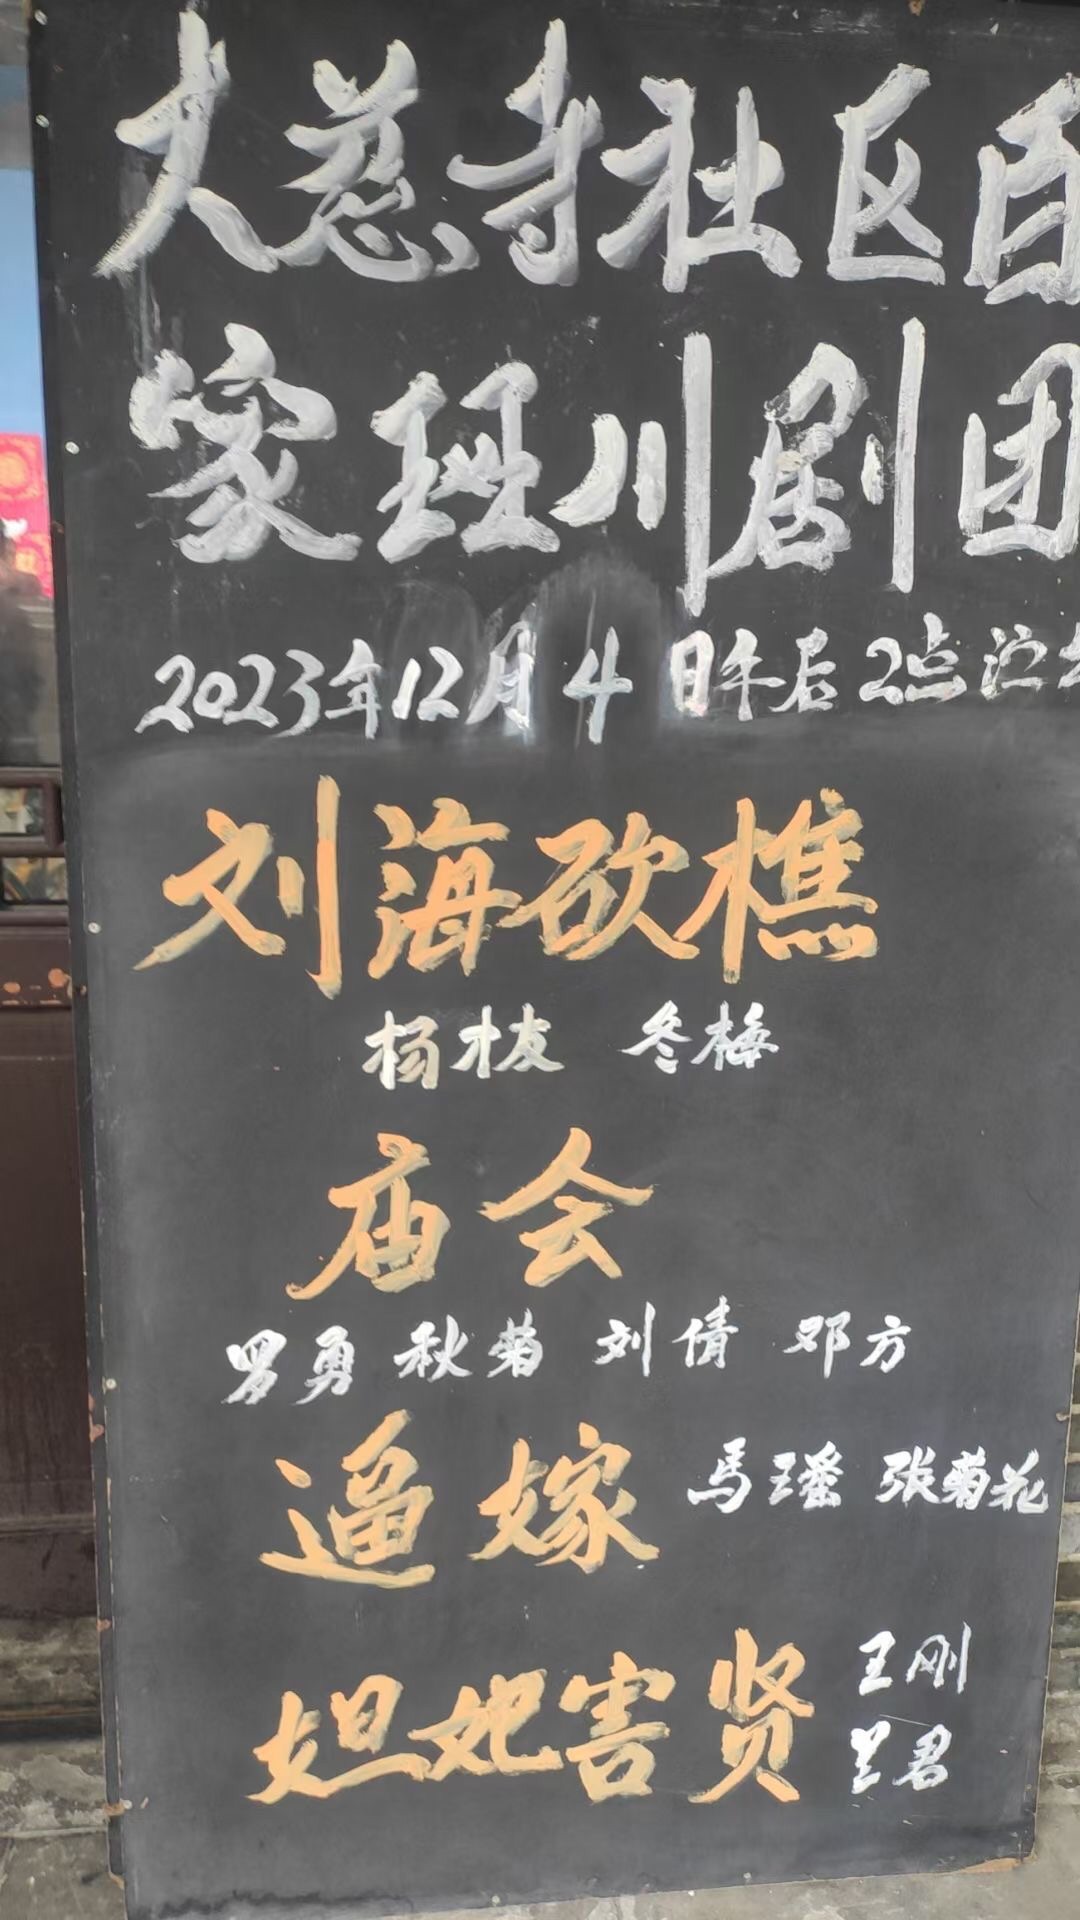 大慈寺社区百
家班川剧团
2023年12月4日午后2点
刘海砍樵
杨枝 冬梅
庙会
罗勇 秋菊 刘倩 邓方
逼嫁 马瑶 张菊花
妲妃害贤 王刚
兰君